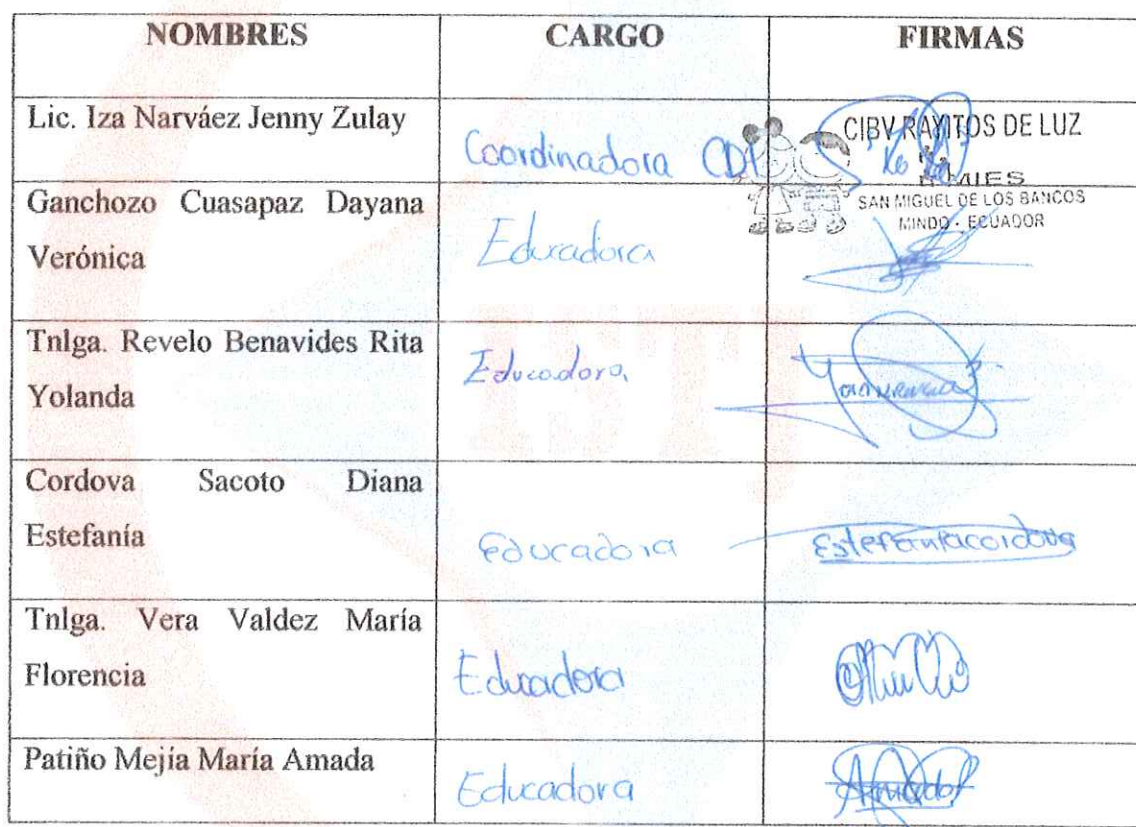 NOMBRES CARGO FIRMAS
Lic. Iza Narváez Jenny Zulay
Coordinadora CDI
CIBV RAYITOS DE LUZ
MIES
SAN MIGUEL DE LOS BANCOS
MINDO - ECUADOR
Ganchozo Cuasapaz Dayana
Verónica
Educadora
Tnlga. Revelo Benavides Rita
Yolanda
Educadora
Cordova Sacoto Diana
Estefanía
Educadora
Estefaniacordova
Tnlga. Vera Valdez María
Florencia
Educadora
Patiño Mejía María Amada
Educadora